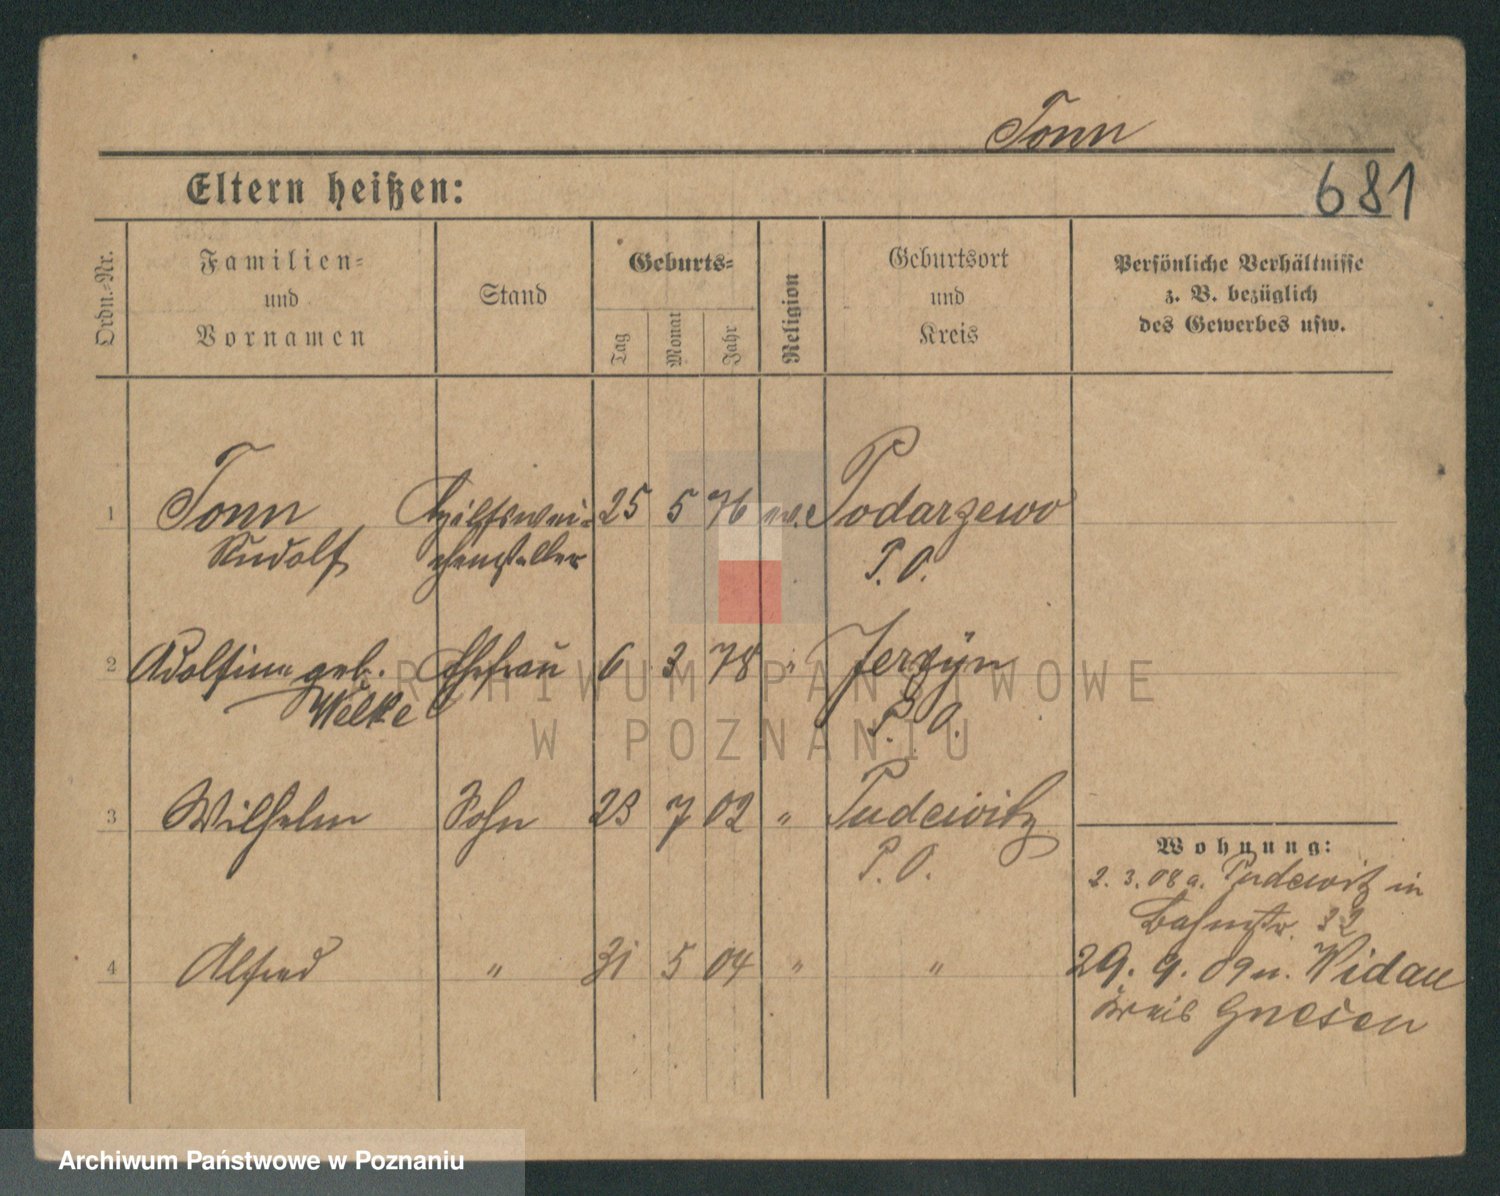 Tonn
681
Eltern heißen:
Ordn.-Nr.
Familien-
und
Vornamen
Stand
Geburts-
Tag
Monat
Jahr
Religion
Geburtsort
und
Kreis
Persönliche Verhältnisse
z. B. bezüglich
des Gewerbes usw.
1 Tonn Hilfswei- 25 5 76 ev. Podarzewo
Rudolf chensteller P. O.
2 Adolfine geb. Ehefrau 6 3 78 " Jerzyn
Welke P. O.
3 Wilhelm Sohn 23 7 02 " Pudewitz
P. O.
Wohnung:
2. 3. 08 a. Pudewitz in
Bahnstr. 32
4 Alfred " 31 5 04 " "
29. 9. 09 n. Kidau
Kreis Gnesen
ARCHIWUM PAŃSTWOWE
W POZNANIU
Archiwum Państwowe w Poznaniu